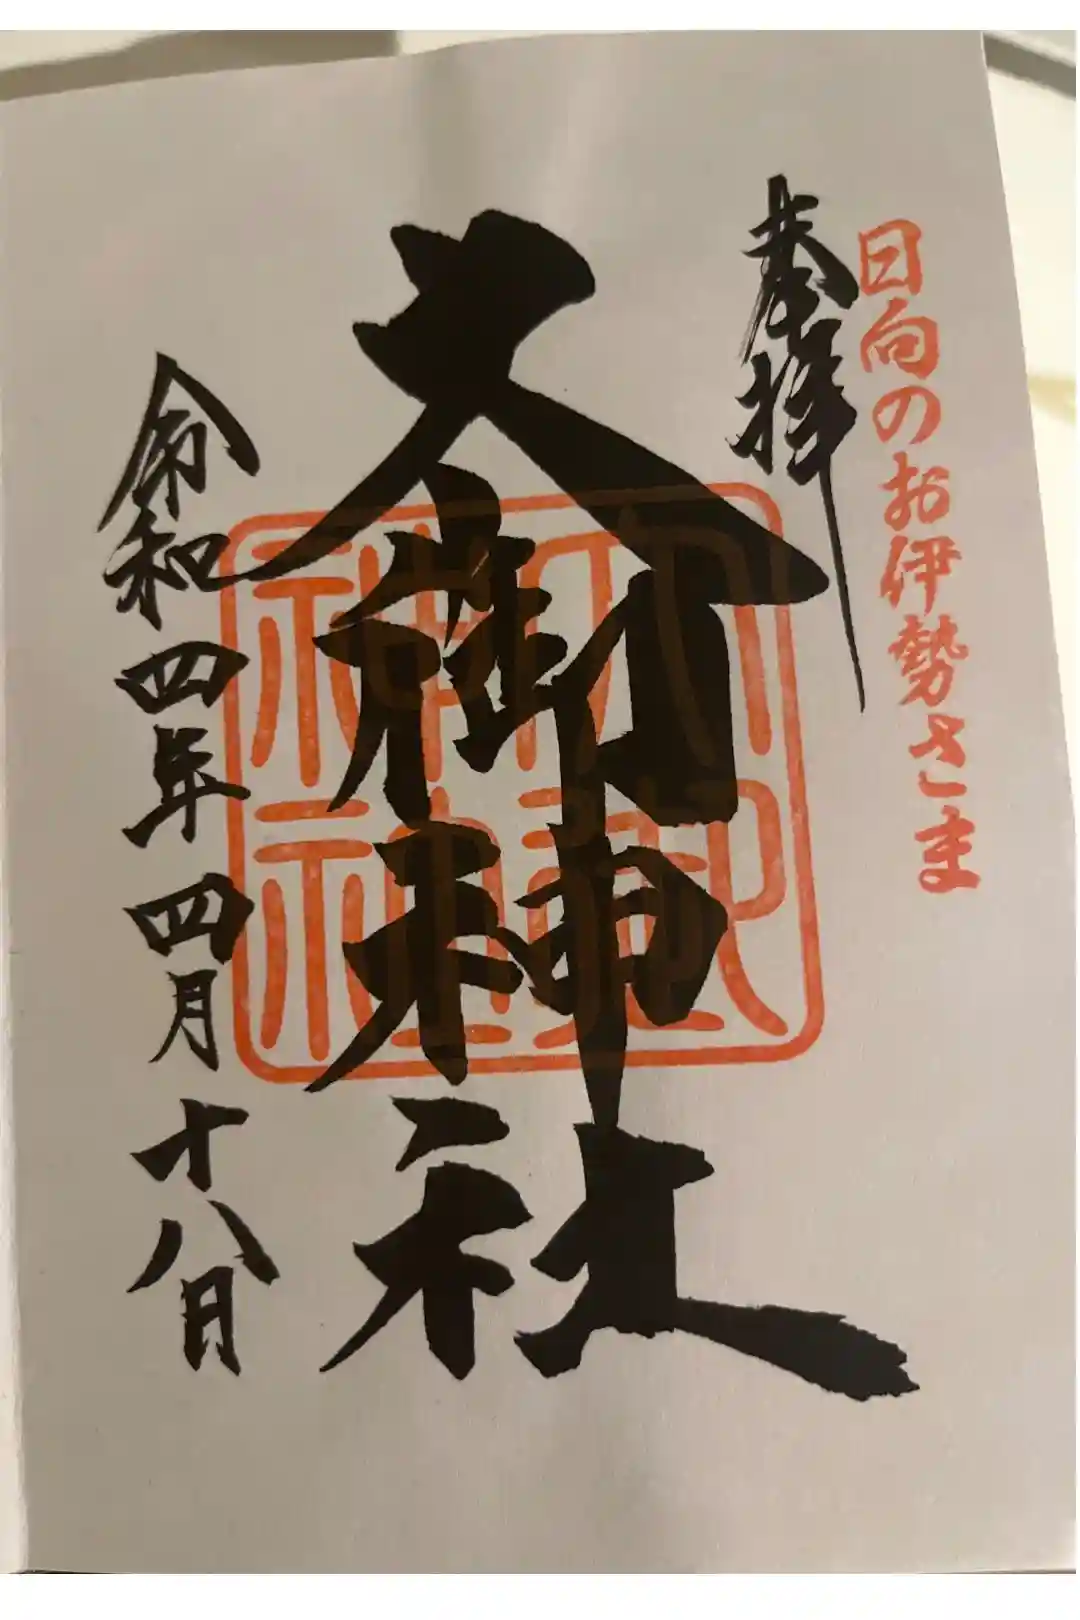 日向のお伊勢さま
奉拝
大御神社
大御神社
令和四年四月十八日